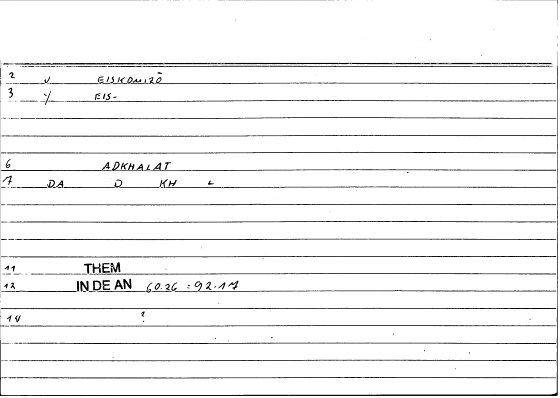 2 v EISKOMIZŌ
3 y EIS-
6 ADKHALAT
7 DA D KH L
11 THEM
12 IN DE AN 60.26 : 92.17
14 ?